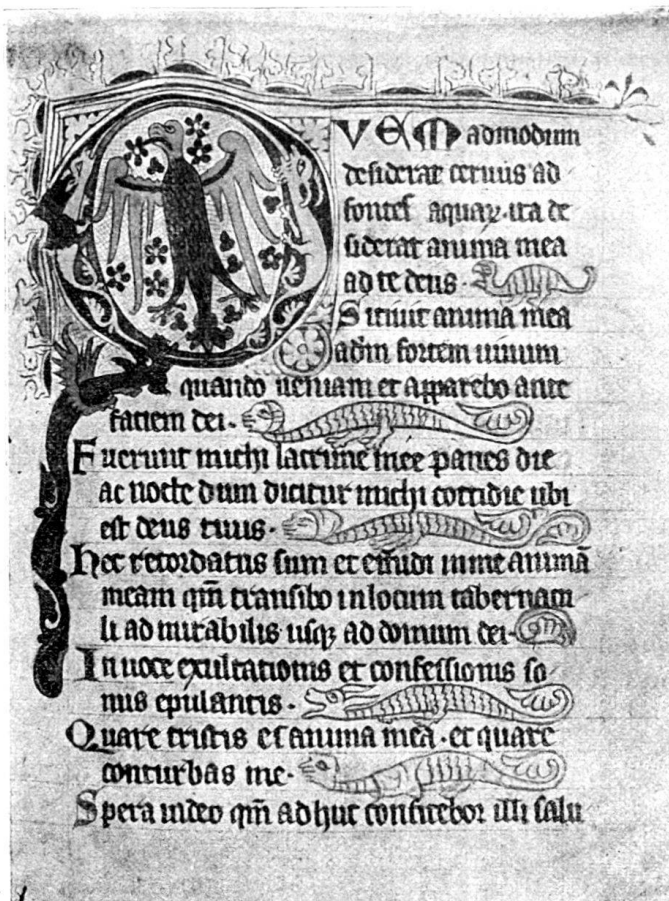 QVEM admodum
desiderat ceruus ad
fontes aquaꝝ·ita de
siderat anima mea
ad te deus·
Sitiuit anima mea
ad𝑚 fortem uiuum
quando ueniam et apparebo ante
faciem dei·
Fuerunt michi lacrime mee panes die
ac nocte dum dicitur michi cottidie ubi
est deus tuus·
Hec recordatus sum et effudi in me animā
meam qm̄ transibo in locum tabernacu
li ad mirabilis usqꝫ ad domum dei·
In uoce exultationis et confessionis so
nus epulantis·
Quare tristis es anima mea·et quare
conturbas me·
Spera in deo qm̄ ad huc confitebor illi salu